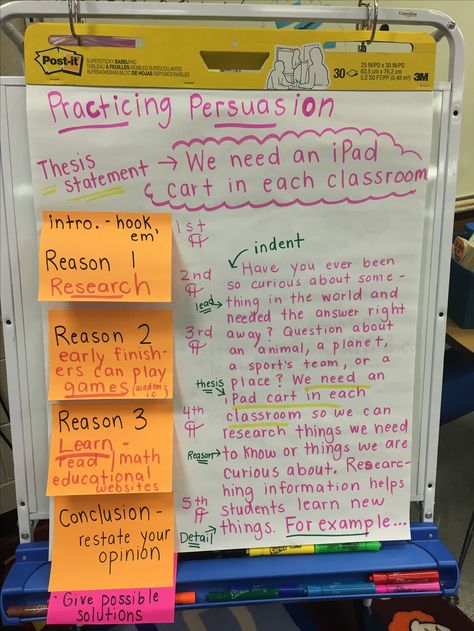 Post-it
SUPERSTICKY EASEL PAD
30
25 IN/PO x 30 IN/PO
63,5 cm x 76,2 cm
5.2 SQ FT/PI2, 0,48 m²
3M
Practicing Persuasion
Thesis statement → We need an iPad
cart in each classroom
intro. - hook,
em,
Reason 1
Research
Reason 2
early finish-
ers can play
games (academ
ic)
Reason 3
Learn -
read / math
educational
websites
Conclusion -
restate your
opinion
- Give possible
solutions
1st
¶
2nd
¶
3rd
¶
4th
¶
5th
¶
indent
lead
thesis
Reason
Detail
Have you ever been
so curious about some-
thing in the world and
needed the answer right
away? Question about
an animal, a planet,
a sport's team, or a
place? We need an
iPad cart in each
classroom so we can
research things we need
to know or things we are
curious about. Resear-
ching information helps
students learn new
things. For example...